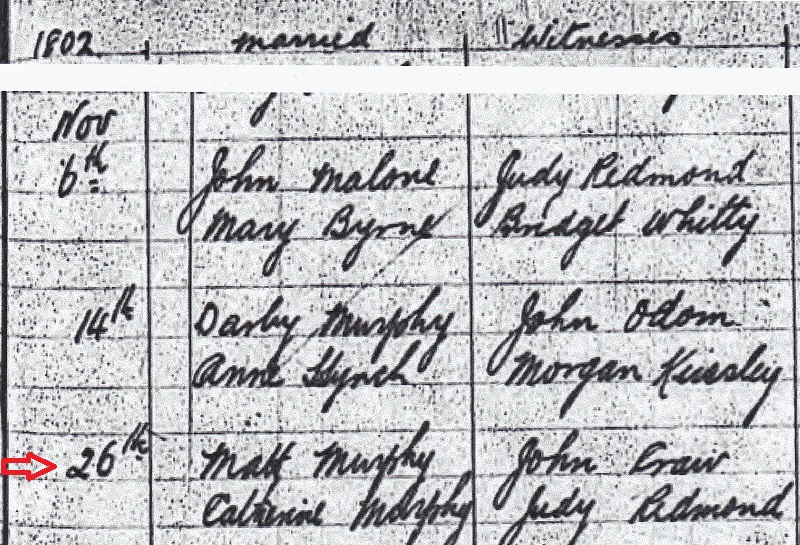 1802 married Witnesses
Nov
6th John Malone Judy Redmond
Mary Byrne Bridget Whitty
14th Darby Murphy John Odom
Anne Morgan
26th Matt Murphy John
Catherine Murphy Judy Redmond